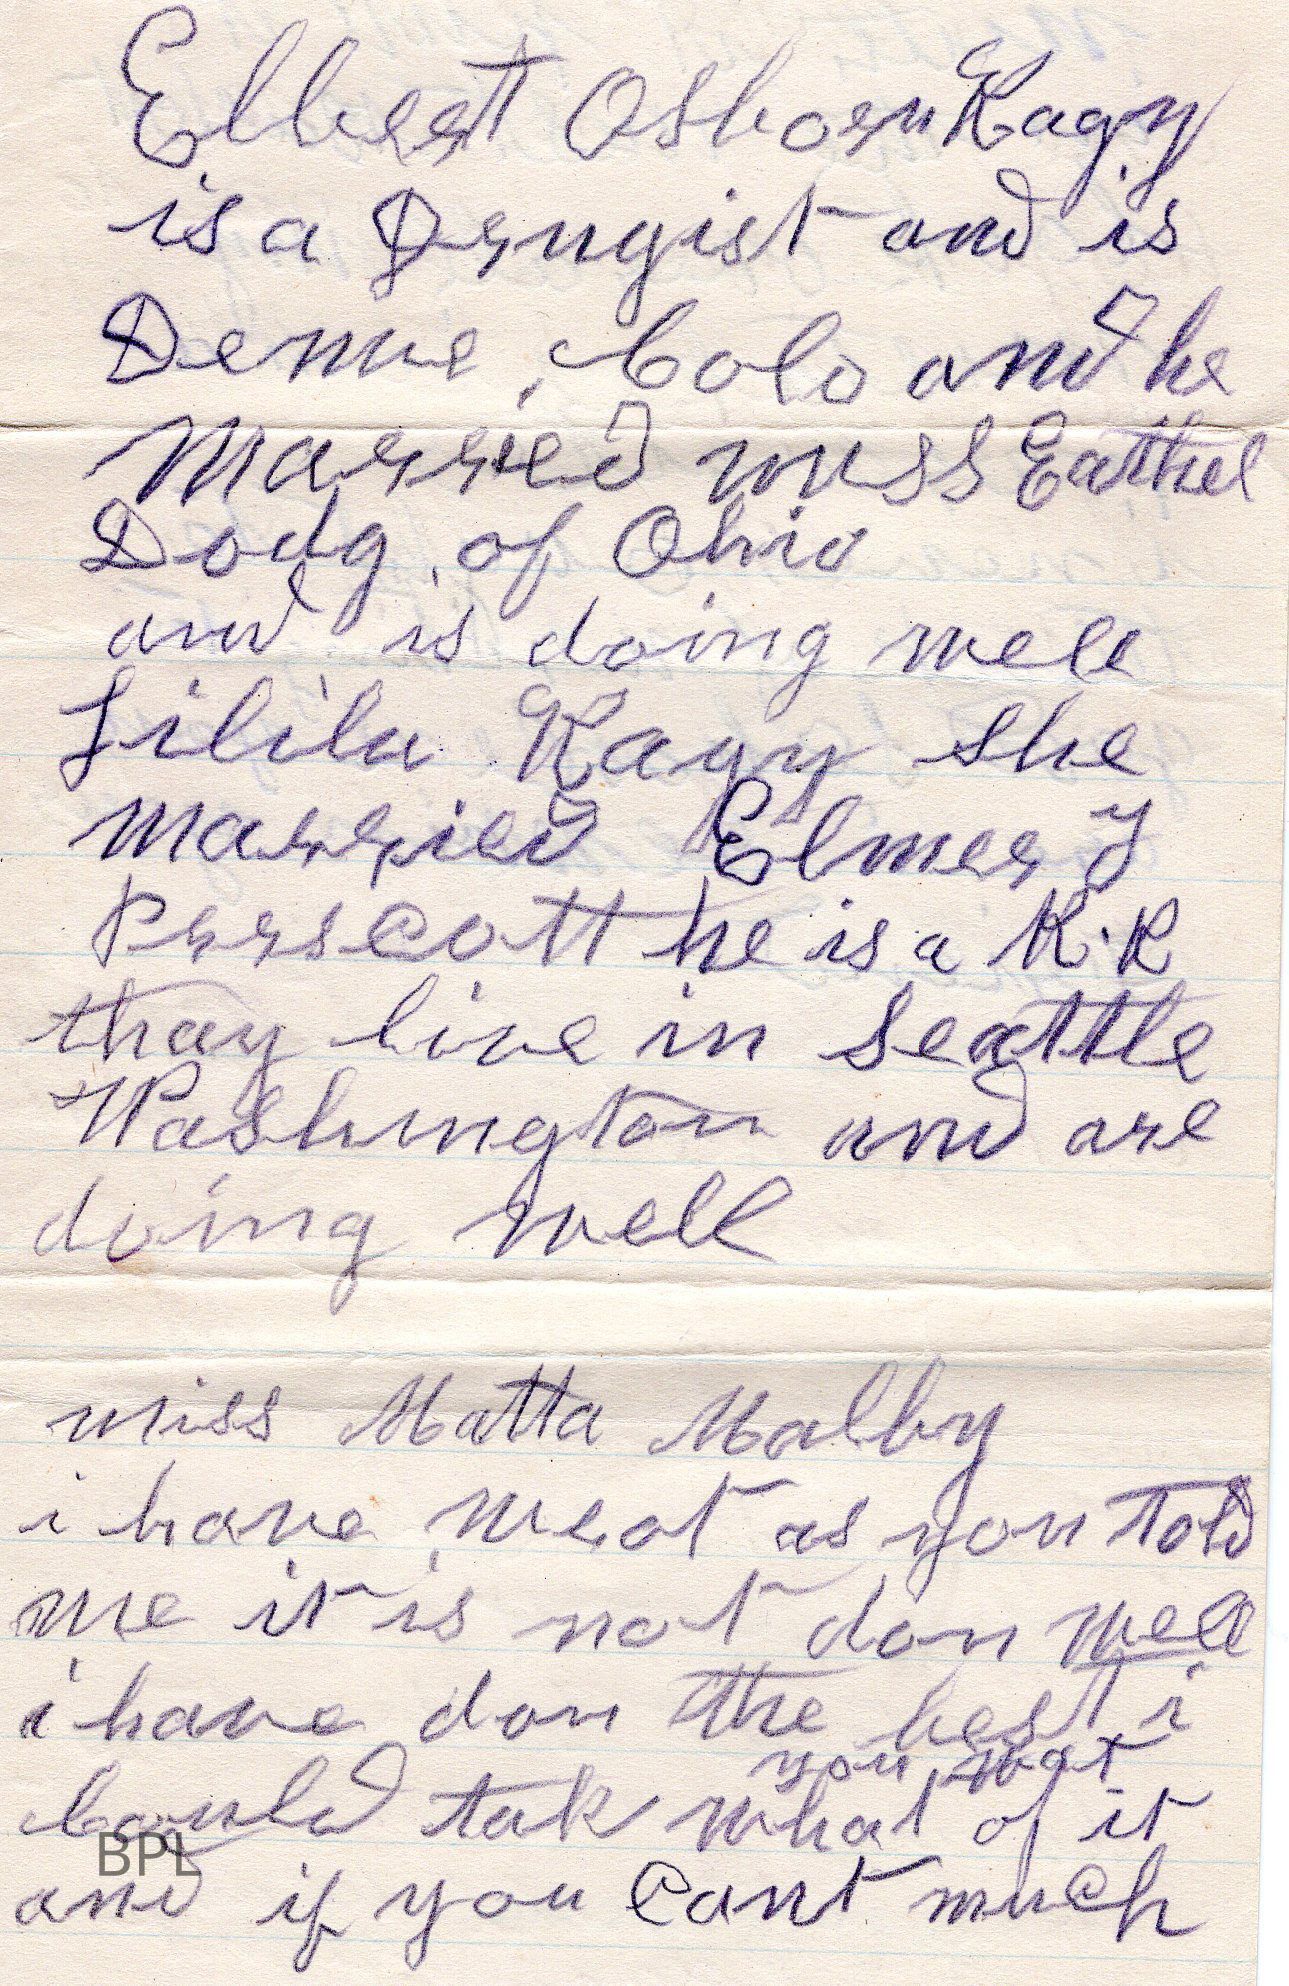 Elbert Osborn Kagy
is a Drugist and is
Denve, Colo and he
Married miss Eathel
Dodg, of Ohio
and is doing well
Lilila Kagy she
married Elmer J
Prrscott he is a R.R
thay live in Seattle
Washington and are
doing well
miss Matta Malby
i have as you told
me it is not don well
i have don the best i
you
Could tak what of it
and if you Cant much
BPL